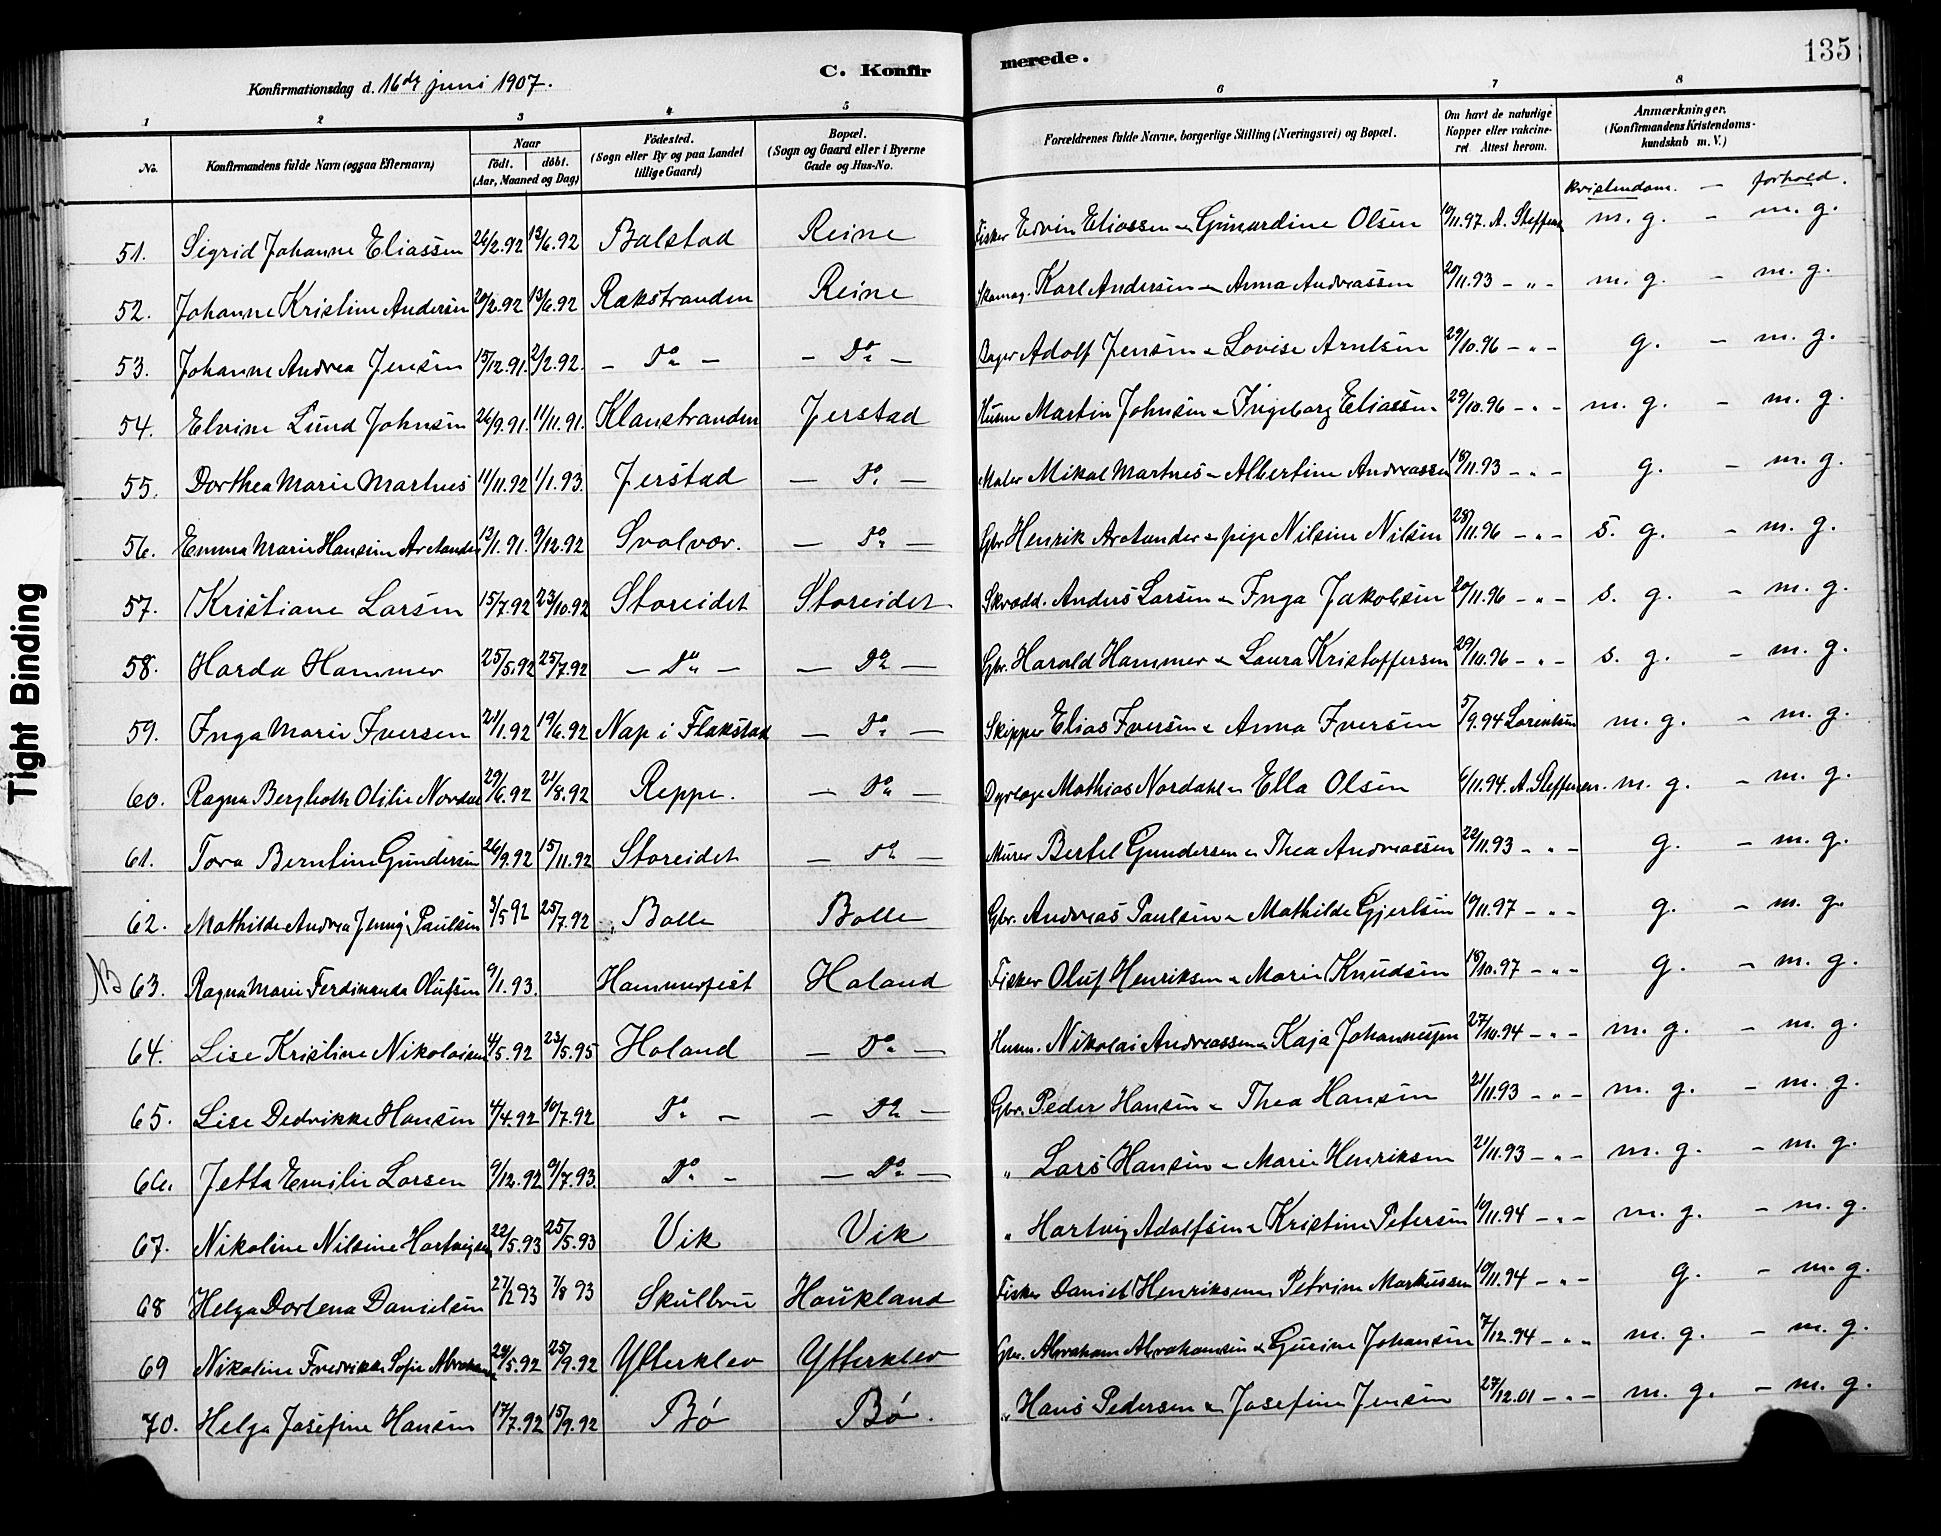 135
C. Konfirmerede.
Konfirmationsdag d. 16de juni 1907.
1 2 3 4 5 6 7 8
No.
Konfirmandens fulde Navn (ogsaa Efternavn)
Naar
födt. döbt.
(Aar, Maaned og Dag)
Födested.
(Sogn eller By og paa Landet
tillige Gaard)
Bopæl.
(Sogn og Gaard eller i Byerne
Gade og Hus-No.
Forældrenes fulde Navne, borgerlige Stilling (Næringsvei) og Bopæl.
Om havt de naturlige
Kopper eller vakcine-
ret Attest herom.
Anmærkninger.
(Konfirmandens Kristendoms-
kundskab m. V.)
Kristendom. — forhold.
51. Sigrid Johanne Eliassen 26/2.92 13/6.92 Balstad Reine Fisker Edvin Eliassen & Gunardine Olsen 19/11.97. A. Steffens m. g. - m. g.
52. Johanne Kristine Andersen 20/2.92 13/6.92 Rækstranden Reine Skomag. Karl Andersen & Anna Andreassen 20/11.93 - " - m. g. - m. g.
53. Johanne Andrea Jensen 15/12.91. 2/2.92. - Do - - Do - Bager Adolf Jensen & Lovise Arntsen 29/10.96 - " - g. - m. g.
54. Elvine Lund Johnsen 26/9.91. 11/11.91. Klanstranden Jerstad Husm Martin Johnsen & Ingeborg Eliassen 29/10.96 - " - m. g. - m. g.
55. Dorthea Marie Martnes 11/11.92 1/1.93. Jerstad - Do - Maler Mikal Martnes & Albertine Andreassen 18/11.93 - " - g. - m. g.
56. Emma Marie Hansine Arctander 13/1.91. 9/12.92 Svolvær. - Do - Gbr Henrik Arctander & pige Nilsine Nilsen 28/11.96 - " - s. g. - m. g.
57. Kristiane Larsen 15/7.92 23/10.92 Storeidet Storeidet Skrædd. Anders Larsen & Inga Jakobsen 20/11.96 - " - s. g. - m. g.
58. Harda Hammer 25/5.92 25/7.92 - Do - - Do - Gbr. Harald Hammer & Laura Kristoffersen 29/10.96 - " - s. g. - m. g.
59. Inga Marie Iversen 21/1.92 19/6.92 Nap i Flakstad - Do - Skipper Elias Iversen & Anna Iversen 5/9.94 Lorentsen m. g. - m. g.
60. Ragna Berglioth Otilie Nordal 29/6.92 21/8.92 Reppe. - Do - Dyrlæge Mathias Nordahl & Ella Olsen 6/11.94. A. Steffensen. m. g. - m. g.
61. Tora Berntine Gundersen 26/9.92 15/11.92 Storeidet - Do - Murer Bertel Gundersen & Thea Andreassen 22/11.93 - " - g. - m. g.
62. Mathilde Andrea Jenny Paulsen 3/5 92 25/7.92 Bolle Bolle Gbr. Andreas Paulsen & Mathilde Gjertsen 19/11.97 - " - g. - m. g.
NB 63. Ragna Marie Ferdinanda Olufsen 9/1.93. Hammerfest Holand Fisker Oluf Henriksen & Marie Knudsen 18/10.97 - " - g. - m. g.
64. Lise Kristine Nikolaisen 4/5.92 23/5.95 Holand - Do - Husm. Nikolai Andreassen & Kaja Johannesen 27/10.94 - " - m. g. - m. g.
65. Lise Dedrikke Hansen 4/4.92 10/7.92 Do - - Do - Gbr. Peder Hansen & Thea Hansen 21/11.93 - " - m. g. - m. g.
66. Jetta Emilie Larsen 9/12.92 9/7.93. Do - - Do - " Lars Hansen & Marie Henriksen 21/11.93 - " - m. g. - m. g.
67. Nikoline Nilsine Hartvigsen 22/5.93 25/5.93 Vik Vik " Hartvig Adolfsen & Kristine Petersen 19/11.94 - " - m. g. - m. g.
68 Helga Dortena Danielsen 27/2 93 7/8 93 Skulbru Haukland Fisker Daniel Henriksen & Petrine Markussen 10/11.94 - " - g. - m. g.
69 Nikoline Fredrikke Sofie Abraham 28/5.92 25/9.92 Ytterklev Ytterklev Gbr. Abraham Abrahamsen & Gurine Johansen 7/12.94 - " - m. g. - m. g.
70. Helga Josefine Hansen 17/7.92 15/9.92 Bø Bø. " Hans Pedersen & Josefine Jensen 27/12.01 - " - m. g. - m. g.
Tight Binding